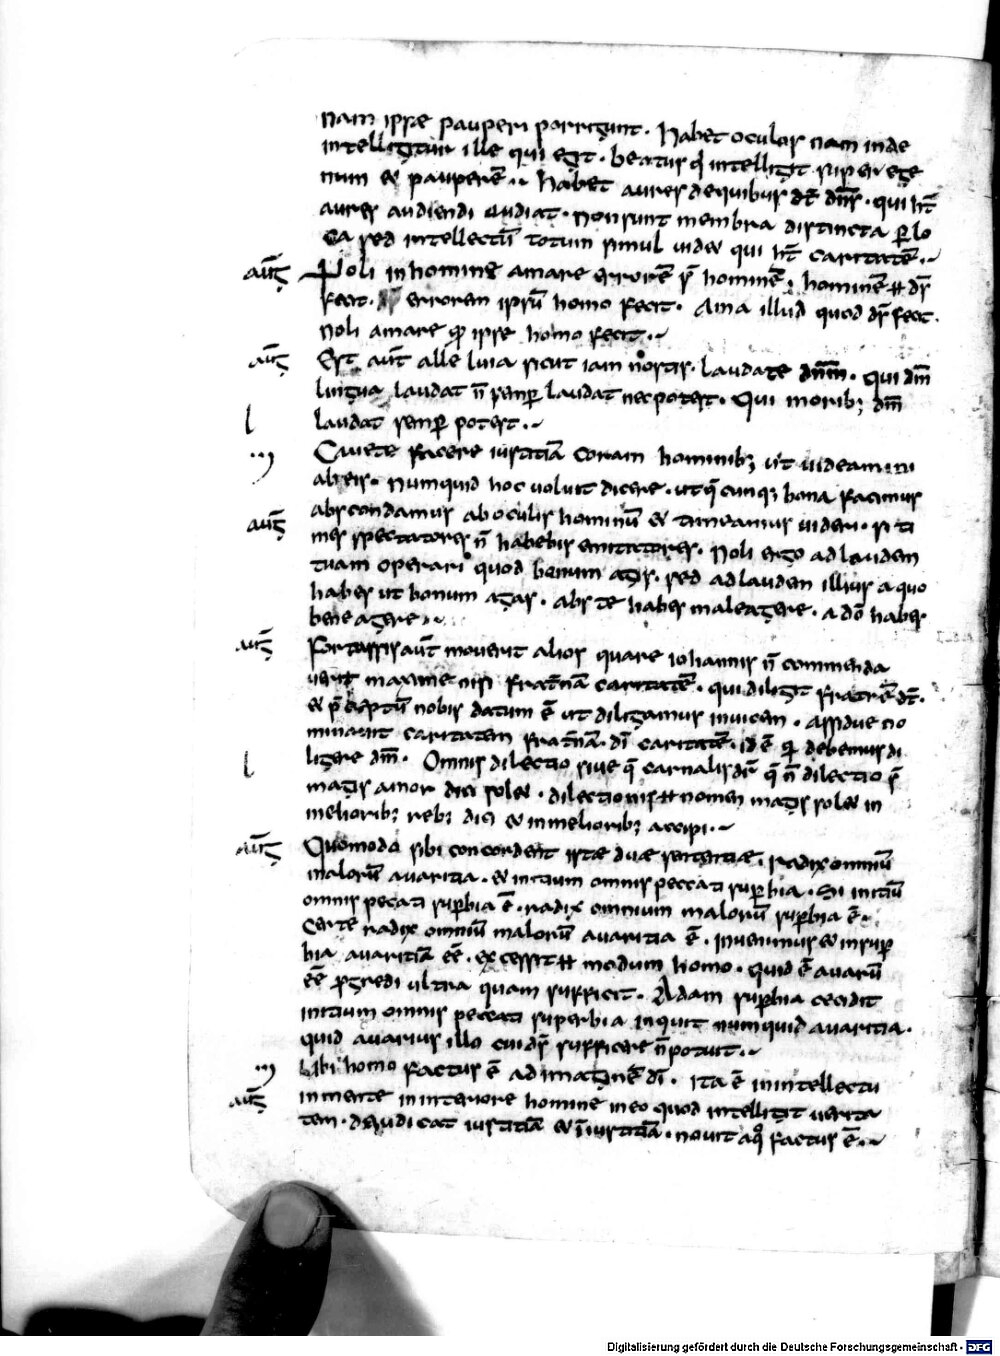 nam ipsae pauperi porrigunt. Habet oculos nam inde
intelligitur ille qui eget. beatus qui intelligit super ege
num et pauperē. Habet aures de quibus dt dns. qui ht
aures audiendi audiat. Non sunt membra distincta per lo
ca sed intellectū totum simul uidet qui ht caritatē.
auḡ Noli in homine amare errorē s; hominē; hominē ds
fecit. errorem ipsū homo fecit. Ama illud quod ds fecit.
Noli amare qđ ipse homo fecit.
auḡ Est aut alleluia sicut iam nostis. laudate dnm. Qui dm
lingua laudat n semp laudat nec potest. Qui morib; dm
l laudat semp potest.
Cauete facere iustitiā coram hominib; ut uideamini
ab eis. Numquid hoc uoluit dicere. ut q̄cunq; bona facimus
auḡ abscondamus ab oculis hominū et timeamus uideri. si ti
mes spectatores n̄ habebis emitatores. Noli ergo ad laudem
tuam operari quod bonum agis. sed ad laudem illius a quo
habes ut bonum agas. abs te habes male agere. a dō habes
bene agere.
auḡ Fortassis aūt mouerit alios quare iohannis n̄ commenda
uerit maxime nisi fratnā caritatē. qui diligit fratrē dt.
et p̄ceptū nobis datum ē ut diligamus inuicem. assidue no
minauit caritatem fratnā. dī caritatē. id ē debemus di
l ligere dm̄. Omnis dilectio siue q̄ carnalis dr q̄ n̄ dilectio s;
magis amor dici solet. dilectionis nomen magis solet in
meliorib; reb; dici et in meliorib; accipi.
auḡ Quomodo sibi concordent istae duae sententiae. radix omniū
malorū auaritia. et initium omnis peccati supbia. Si initiū
omnis peccati supbia ē. radix omnium malorū supbia ē.
Certe radix omniū malorū auaritia ē. inuenimus et in sup
bia auaritiā eē. excessit modum homo. quid ē auarū
eē pgredi ultra quam sufficit. Adam supbia cecidit
initium omnis peccati superbia inquit numquid auaritia.
quid auarius illo cui ds sufficere n̄ potuit.
Ubi homo factus ē ad imaginē dī. ita ē in intellectu
auḡ in mente in interiore homine in eo quod intelligit uerita
tem. diiudicat iustitiā et iniustitiā. nouit a quo factus ē.
Digitalisierung gefördert durch die Deutsche Forschungsgemeinschaft - DFG